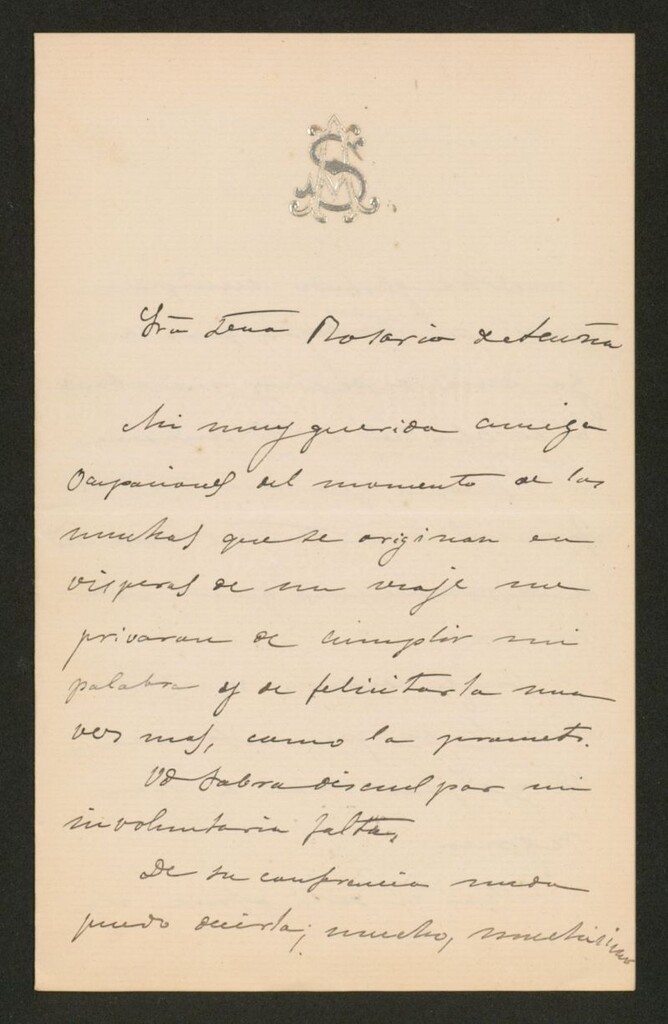 Sra Dña Rosario de Acuña
Mi muy querida amiga
Ocupaciones del momento de las
muchas que se originan en
visperas de un viaje me
privaron de cumplir mi
palabra y de felicitarla una
ves mas, como la prometi.
Vd sabra disculpar mi
involuntaria falta,
De su conferencia nada
puedo decirla; mucho, muchisimo